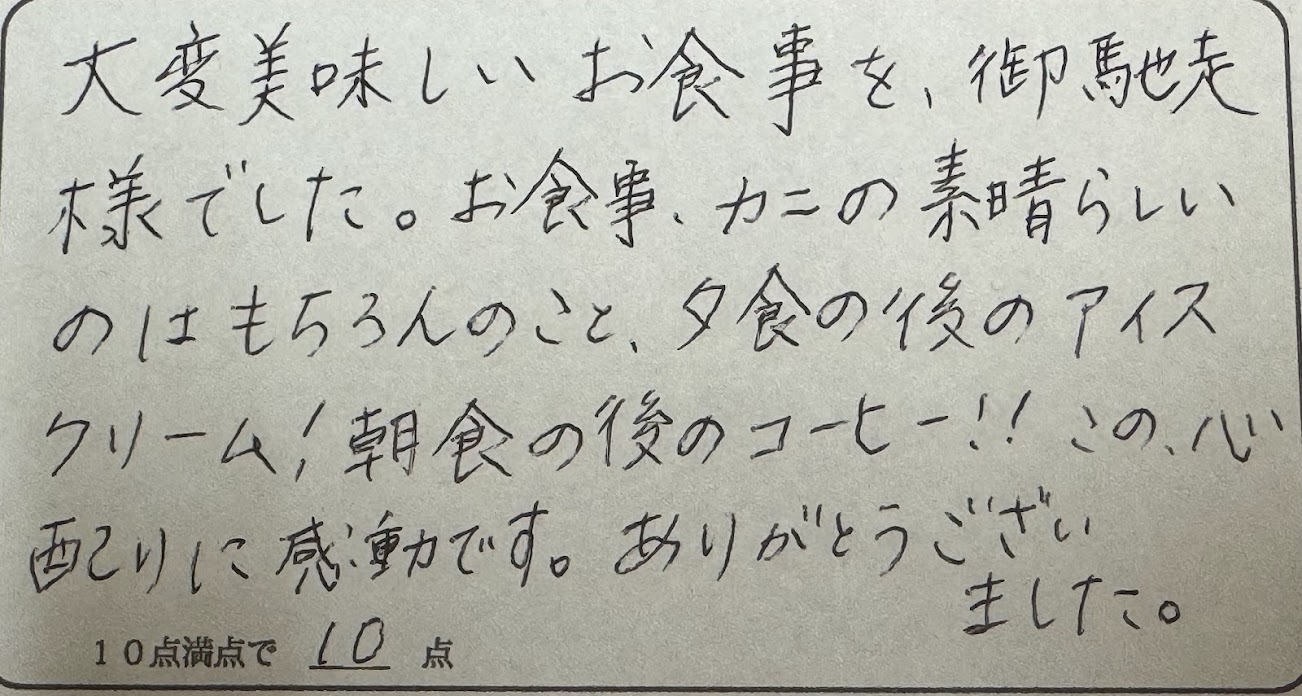 大変美味しいお食事を、御馳走
様でした。お食事、カニの素晴らしい
のはもちろんのこと、夕食の後のアイス
クリーム!朝食の後のコーヒー!!この、心
配りに感動です。ありがとうござい
ました。
10点満点で 10 点